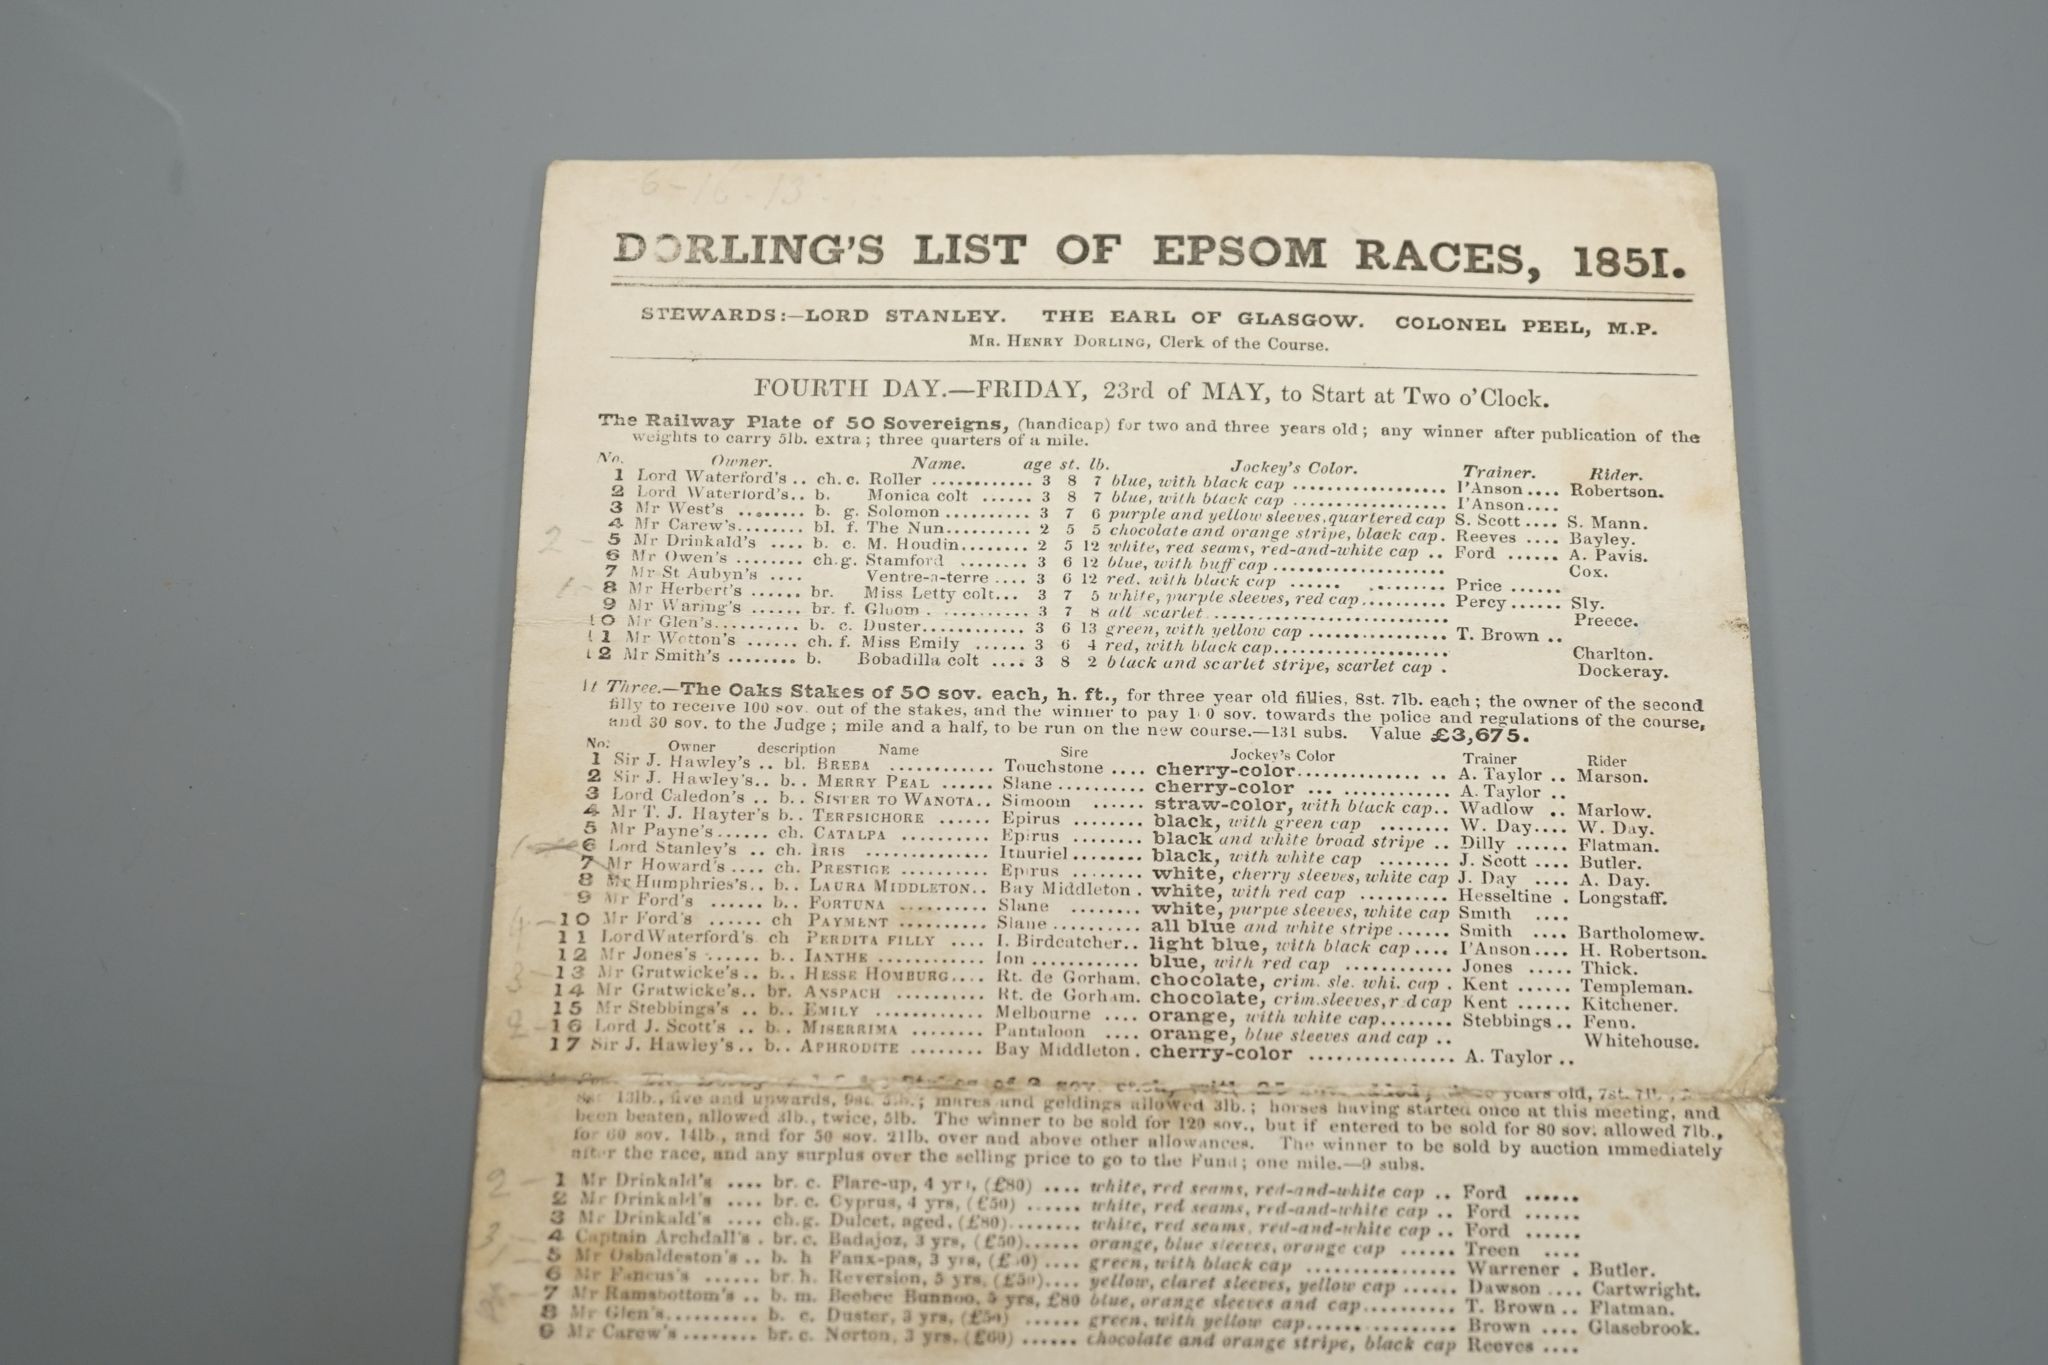 6-16-13
DORLING'S LIST OF EPSOM RACES, 1851.
STEWARDS:—LORD STANLEY. THE EARL OF GLASGOW. COLONEL PEEL, M.P.
MR. HENRY DORLING, Clerk of the Course.
FOURTH DAY.—FRIDAY, 23rd of MAY, to Start at Two o'Clock.
The Railway Plate of 50 Sovereigns, (handicap) for two and three years old; any winner after publication of the
weights to carry 5lb. extra; three quarters of a mile.
No. Owner. Name. age st. lb. Jockey's Color. Trainer. Rider.
1 Lord Waterford's .. ch. c. Roller ............ 3 8 7 blue, with black cap .................. I'Anson.... Robertson.
2 Lord Waterford's.. b. Monica colt ...... 3 8 7 blue, with black cap .................. I'Anson....
3 Mr West's ........ b. g. Solomon .......... 3 7 6 purple and yellow sleeves, quartered cap S. Scott .... S. Mann.
4 Mr Carew's........ bl. f. The Nun.......... 2 5 5 chocolate and orange stripe, black cap. Reeves .... Bayley.
2 - 5 Mr Drinkald's .... b. c. M. Houdin........ 2 5 12 white, red seams, red-and-white cap .. Ford ...... A. Pavis.
6 Mr Owen's ........ ch.g. Stamford ........ 3 6 12 blue, with buff cap .................... Cox.
7 Mr St Aubyn's .... Ventre-a-terre .... 3 6 12 red. with black cap ...... ......... Price ......
1 - 8 Mr Herbert's ...... br. Miss Letty colt... 3 7 5 white, purple sleeves, red cap.......... Percy...... Sly.
9 Mr Waring's ...... br. f. Gloom ............ 3 7 8 all scarlet ........................... Preece.
10 Mr Glen's.......... b. c. Duster............ 3 6 13 green, with yellow cap ................ T. Brown ..
11 Mr Wotton's ...... ch. f. Miss Emily ...... 3 6 4 red, with black cap.................... Charlton.
12 Mr Smith's ........ b. Bobadilla colt .... 3 8 2 black and scarlet stripe, scarlet cap . Dockeray.
At Three.—The Oaks Stakes of 50 sov. each, h. ft., for three year old fillies, 8st. 7lb. each; the owner of the second
filly to receive 100 sov. out of the stakes, and the winner to pay 1 0 sov. towards the police and regulations of the course,
and 30 sov. to the Judge; mile and a half, to be run on the new course.—131 subs. Value £3,675.
No: Owner description Name Sire Jockey's Color Trainer Rider
1 Sir J. Hawley's .. bl. BREBA ............ Touchstone .... cherry-color............... .. A. Taylor .. Marson.
2 Sir J. Hawley's.. b. . MERRY PEAL ...... Slane .......... cherry-color ... ............ A. Taylor ..
3 Lord Caledon's .. b. . SISTER TO WANOTA.. Simoom ...... straw-color, with black cap.. Wadlow .. Marlow.
4 Mr T. J. Hayter's b. . TERPSICHORE ...... Epirus ........ black, with green cap ........ W. Day.... W. Day.
5 Mr Payne's ...... ch. CATALPA .......... Epirus ........ black and white broad stripe .. Dilly ...... Flatman.
1 - 6 Lord Stanley's .. ch. IRIS .............. Ithuriel ........ black, with white cap ........ J. Scott .... Butler.
7 Mr Howard's .... ch. PRESTIGE .......... Epirus ........ white, cherry sleeves, white cap J. Day .... A. Day.
8 Mr Humphries's.. b. . LAURA MIDDLETON.. Bay Middleton . white, with red cap .......... Hesseltine . Longstaff.
9 Mr Ford's ...... b. . FORTUNA .......... Slane ........ white, purple sleeves, white cap Smith ....
4 - 10 Mr Ford's ...... ch PAYMENT .......... Slane .......... all blue and white stripe ...... Smith .... Bartholomew.
11 Lord Waterford's ch PERDITA FILLY .... I. Birdcatcher.. light blue, with black cap .... I'Anson.... H. Robertson.
12 Mr Jones's ...... b. . IANTHE ............ Ion ............ blue, with red cap ............ Jones ..... Thick.
3 - 13 Mr Gratwicke's.. b. . HESSE HOMBURG.... Rt. de Gorham. chocolate, crim. sle. whi. cap . Kent ...... Templeman.
14 Mr Gratwicke's.. br. ANSPACH .......... Rt. de Gorham. chocolate, crim.sleeves, r d cap Kent ...... Kitchener.
15 Mr Stebbings's .. b. . EMILY ............ Melbourne .... orange, with white cap........ Stebbings .. Fenn.
2 - 16 Lord J. Scott's .. b. . MISERRIMA ........ Pantaloon .... orange, blue sleeves and cap .. Whitehouse.
17 Sir J. Hawley's.. b. . APHRODITE ........ Bay Middleton . cherry-color ................ A. Taylor ..
Stakes of sov. each, years old, 7st. 7lb.,
8st. 13lb., five and upwards, 9st. mares and geldings allowed 3lb.; horses having started once at this meeting, and
been beaten, allowed 3lb., twice, 5lb. The winner to be sold for 120 sov., but if entered to be sold for 80 sov. allowed 7lb.,
for 60 sov. 14lb., and for 50 sov. 21lb. over and above other allowances. The winner to be sold by auction immediately
after the race, and any surplus over the selling price to go to the Fund; one mile.—9 subs.
2 - 1 Mr Drinkald's .... br. c. Flare-up, 4 yrs, (£80) .... white, red seams, red-and-white cap .. Ford ......
2 Mr Drinkald's .... br. c. Cyprus, 4 yrs, (£50) ...... white, red seams, red-and-white cap .. Ford ......
3 Mr Drinkald's .... ch.g. Dulcet, aged, (£80)........ white, red seams, red-and-white cap .. Ford ......
3 - 4 Captain Archdall's . br. c. Badajoz, 3 yrs, (£50)...... orange, blue sleeves, orange cap ...... Treen ....
1 - 5 Mr Osbaldeston's .. b. h Faux-pas, 3 yrs, (£ 0) .... green, with black cap ................ Warrener . Butler.
6 Mr Fancus's ...... br. h. Reversion, 5 yrs, (£50).... yellow, claret sleeves, yellow cap ...... Dawson .... Cartwright.
7 Mr Ramsbottom's .. b. m. Beebee Bunnoo, 5 yrs, £80 blue, orange sleeves and cap.......... T. Brown .. Flatman.
8 Mr Glen's.......... b. c. Duster, 3 yrs, (£50) ...... green, with yellow cap................ Brown .... Glasebrook.
9 Mr Carew's........ br. c. Norton, 3 yrs, (£60) ...... chocolate and orange stripe, black cap Reeves ....